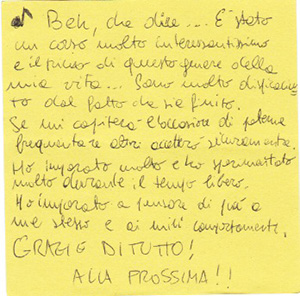 Beh, che dire... È stato
un corso molto interessantissimo
e il primo di questo genere della
mia vita... Sono molto dispiaciu
to dal fatto che sia finito.
Se mi capiterà l'occasione di poterne
frequentare altri accetterò sicuramente.
Ho imparato molto e ho sperimentato
molto durante il tempo libero.
Ho imparato a pensare di più a
me stesso e ai miei comportamenti.
GRAZIE DI TUTTO!
ALLA PROSSIMA!!